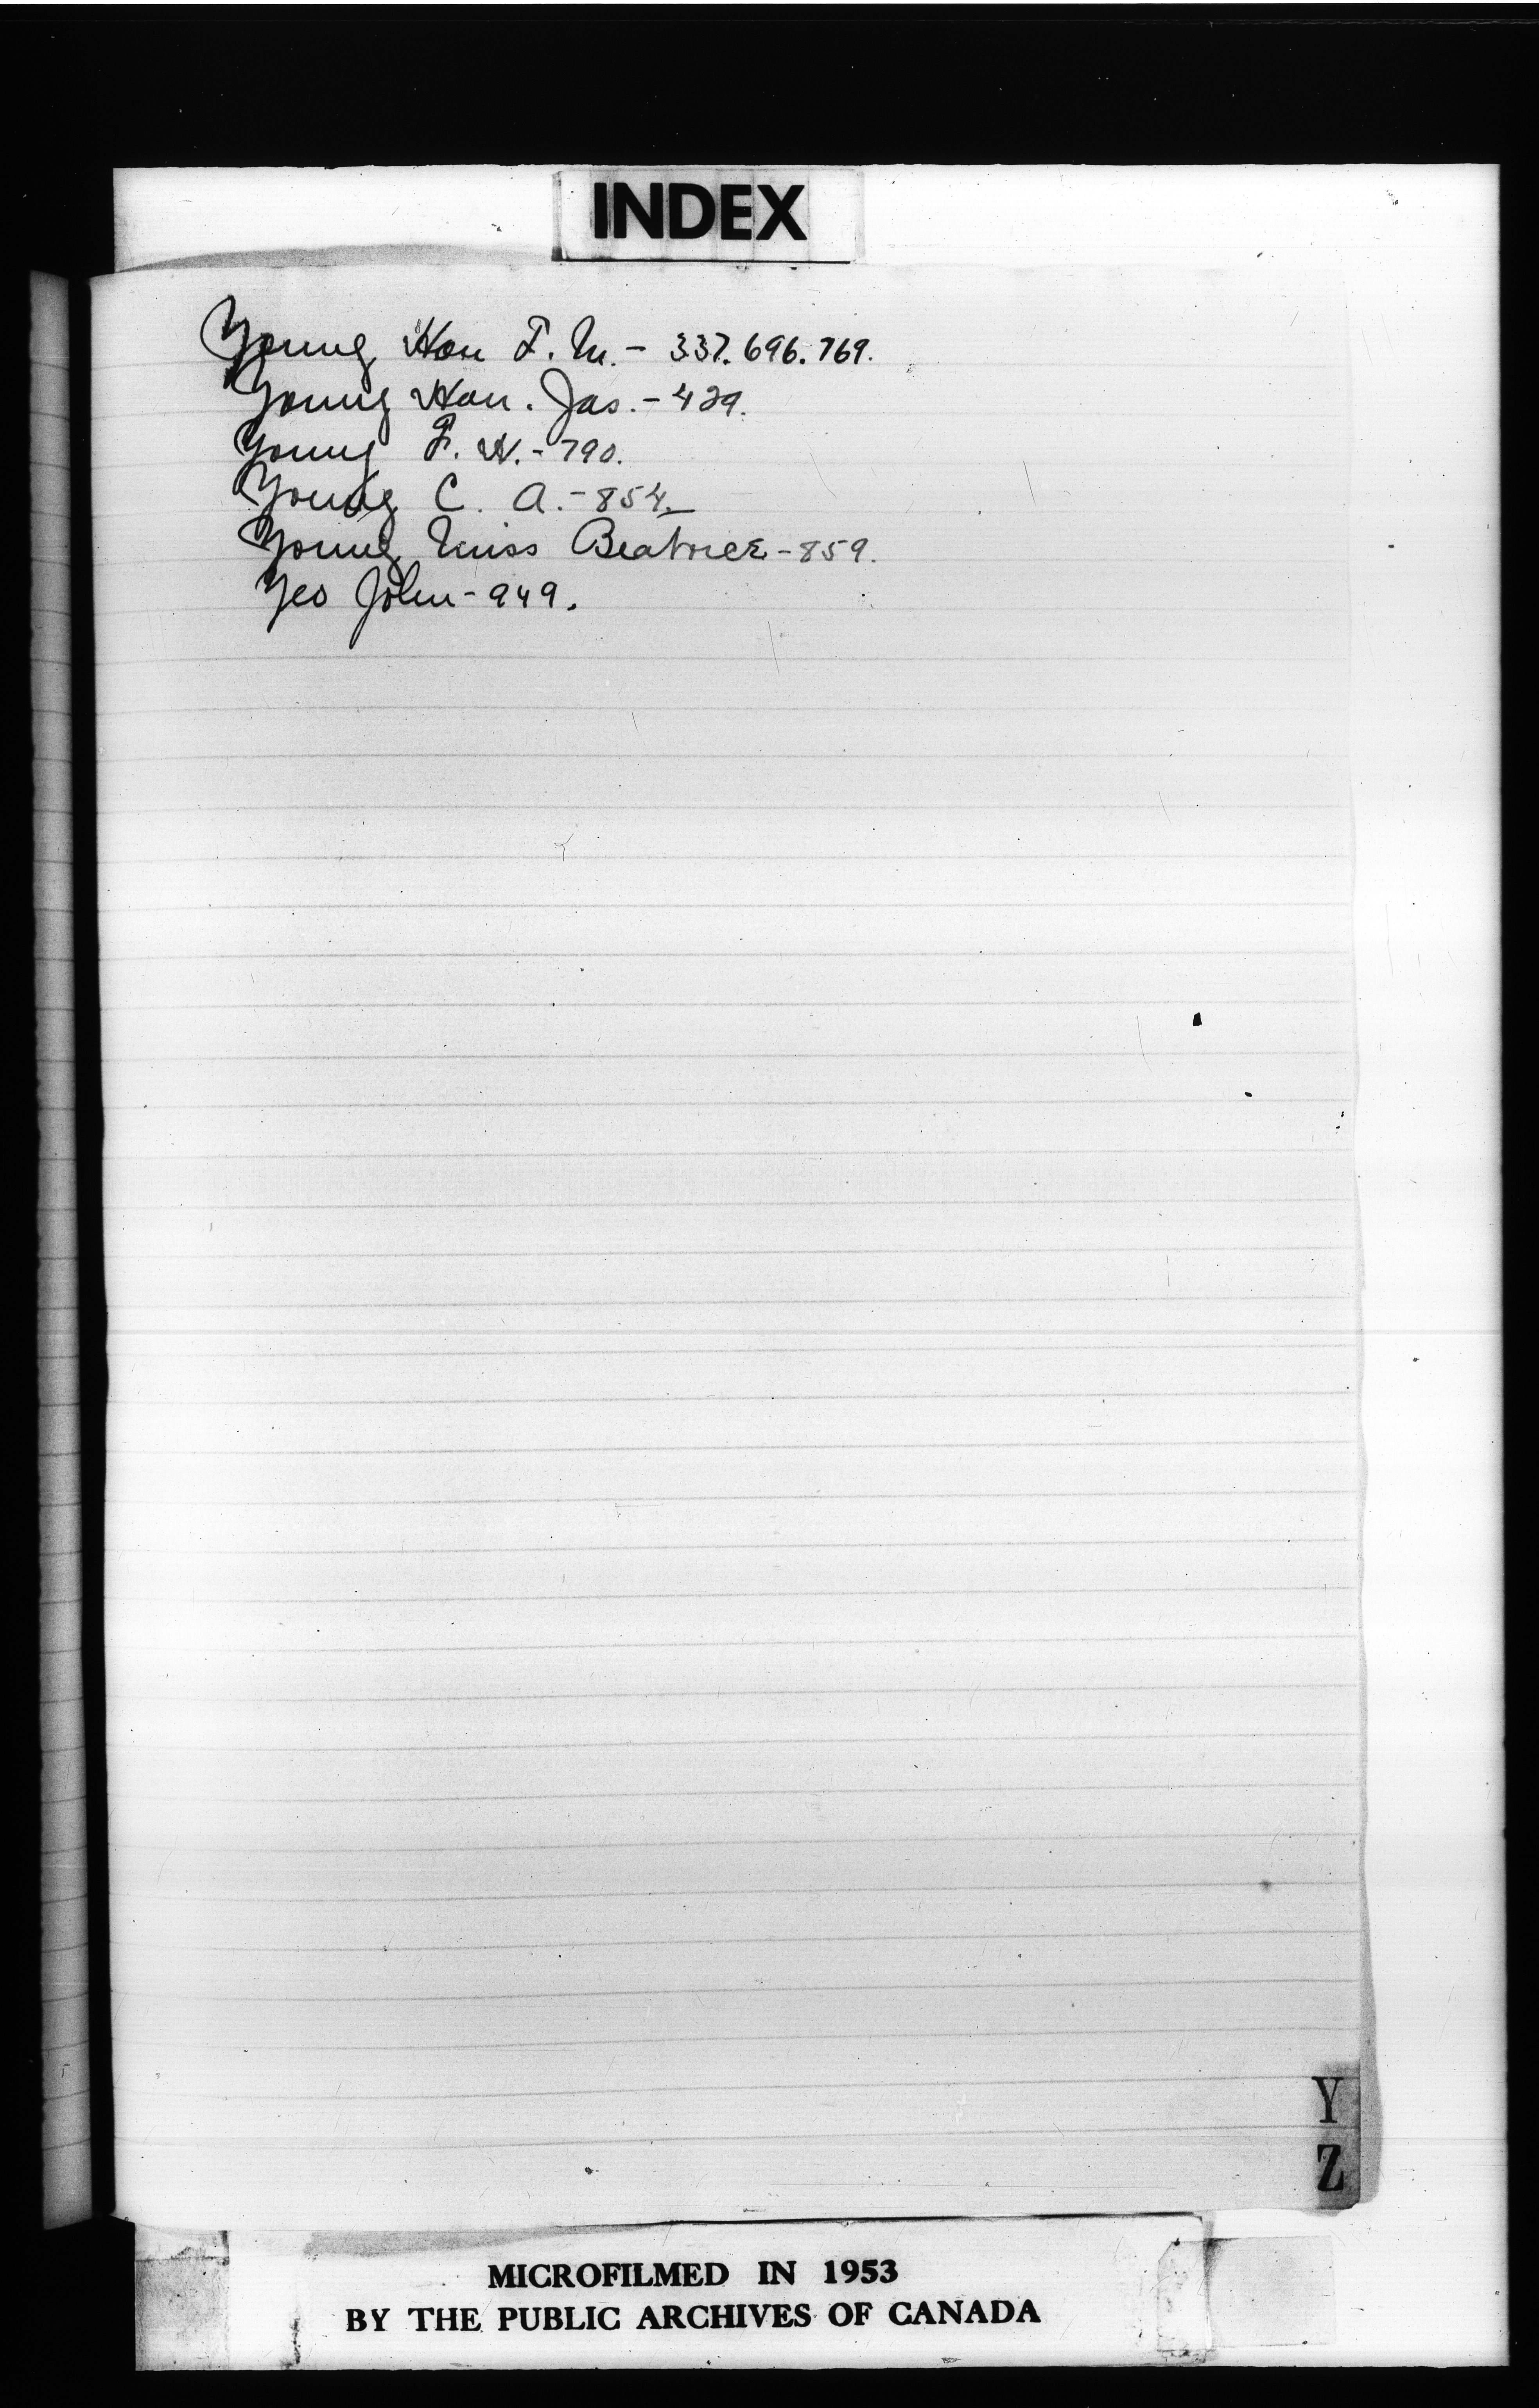 INDEX
Young Hon F. M. - 337. 696. 769.
Young Hon. Jas. - 429.
Young F. W. - 790.
Young C. A. - 854.
Young Miss Beatrice - 859.
Yeo John - 949.
Y
Z
MICROFILMED IN 1953
BY THE PUBLIC ARCHIVES OF CANADA